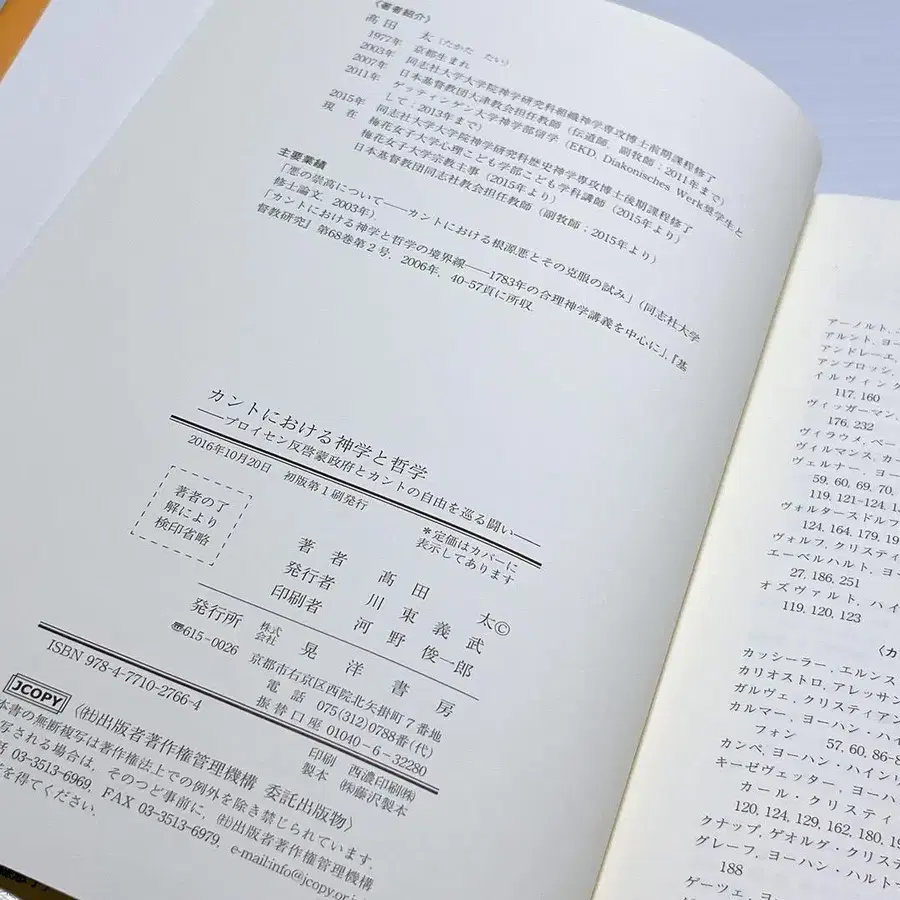 〈著者紹介〉
高田 太(たかた たい)
1977年 京都生まれ
2003年 同志社大学大学院神学研究科組織神学専攻博士前期課程修了
2007年 日本基督教団大津教会担任教師(伝道師,副牧師:2011年まで)
2011年 ゲッティンゲン大学神学部留学(EKD, Diakonisches Werk奨学生と
して:2013年まで)
2015年 同志社大学大学院神学研究科歴史神学専攻博士後期課程修了
現 在 梅花女子大学心理こども学部こども学科講師(2015年より)
梅花女子大学宗教主事(2015年より)
日本基督教団同志社教会担任教師(副牧師:2015年より)
主要業績
「悪の崇高について――カントにおける根源悪とその克服の試み」(同志社大学
修士論文,2003年).
「カントにおける神学と哲学の境界線――1783年の合理神学講義を中心に」,『基
督教研究』第68巻第2号,2006年,40-57頁に所収
カントにおける神学と哲学
――プロイセン反啓蒙政府とカントの自由を巡る闘い――
2016年10月20日 初版第1刷発行
*定価はカバーに
表示してあります
著者の了
解により
検印省略
著 者 高 田 太©
発行者 川 東 義 武
印刷者 河 野 俊一郎
発行所 株式会社 晃 洋 書 房
〠615-0026 京都市右京区西院北矢掛町7番地
電 話 075(312)0788番(代)
振替口座 01040-6-32280
ISBN 978-4-7710-2766-4
印刷 西濃印刷㈱
製本 ㈱藤沢製本
JCOPY 〈㈳出版者著作権管理機構 委託出版物〉
本書の無断複写は著作権法上での例外を除き禁じられています.
写される場合は,そのつど事前に,㈳出版者著作権管理機構
話 03-3513-6969, FAX 03-3513-6979, e-mail:info@jcopy.or.j
を得てください.
アーノルト,
アルント,ヨー
アンドレーエ,
アンブロッシ,
イルヴィング
117, 160
ヴィッガーマン,
176, 232
ヴィラウメ,ペー
ヴィルマンス,カー
ヴェルナー,ヨー
59, 60, 69, 70,
119, 121-124, 1
ヴォルタースドルフ
124, 164, 179, 19
ヴォルフ,クリスティ
エーベルハルト,ヨー
27, 186, 251
オズヴァルト,ハイン
119, 120, 123
〈カ
カッシーラー,エルンス
カリオストロ,アレッサン
ガルヴェ,クリスティアン
カルマー,ヨーハン・ハイ
フォン 57, 60, 86-8
カンペ,ヨーハン・ハインリ
キーゼヴェッター,ヨーハ
カール・クリスティ
120, 124, 129, 162, 180, 19
クナップ,ゲオルグ・クリステ
グレーフ,ヨーハン・ハルトー
188
ゲーツェ,ヨー